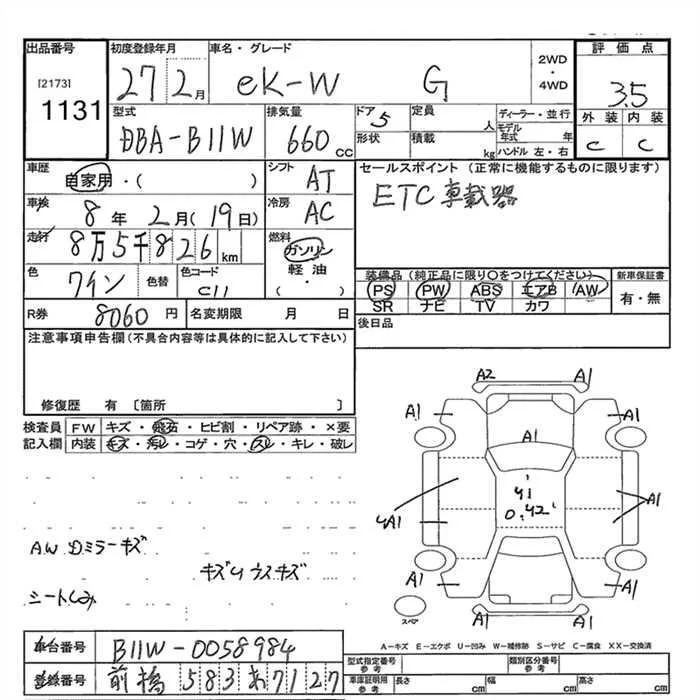 出品番号 初度登録年月 車名・グレード 2WD・4WD 評価点
[2173] 1131 27 2月 eK-W G 3.5
型式 排気量 ドア 定員 ディーラー・並行 外装 内装
DBA-B11W 660cc 5 人 モデル年式 年 C C
形状 積載 kg ハンドル 左・右
車歴 シフト セールスポイント (正常に機能するものに限ります)
自家用・( ) AT ETC車載器
車検 8年 2月(19日) 冷房 AC
走行 8万5千826km 燃料 ガソリン 軽油・( )
色 ワイン 色替 色コード C11
装備品(純正品に限り○をつけてください) 新車保証書
PS PW ABS エアB AW 有・無
SR ナビ TV カワ
R券 8060円 名変期限 月 日 後日品
注意事項申告欄(不具合内容等は具体的に記入して下さい)
修復歴 有 〔箇所 〕
検査員 FW キズ・飛石・ヒビ割・リペア跡・×要
記入欄 内装 キズ・汚レ・コゲ・穴・スレ・キレ・破レ
A2 A1
A1 A1
A1
41
0.42
4A1 A1
A1 A1
A1 A1
スペア
A.W Dミラーキズ
キズ
シートしみ
A-キズ E-エクボ U-凹み W-補修跡 S-サビ C-腐食 XX-交換済
車台番号 B11W-0058984
登録番号 前橋 583 あ 7127
型式指定番号 参考 類別区分番号 参考
車庫証明用 参考 長さ cm 幅 cm 高さ cm